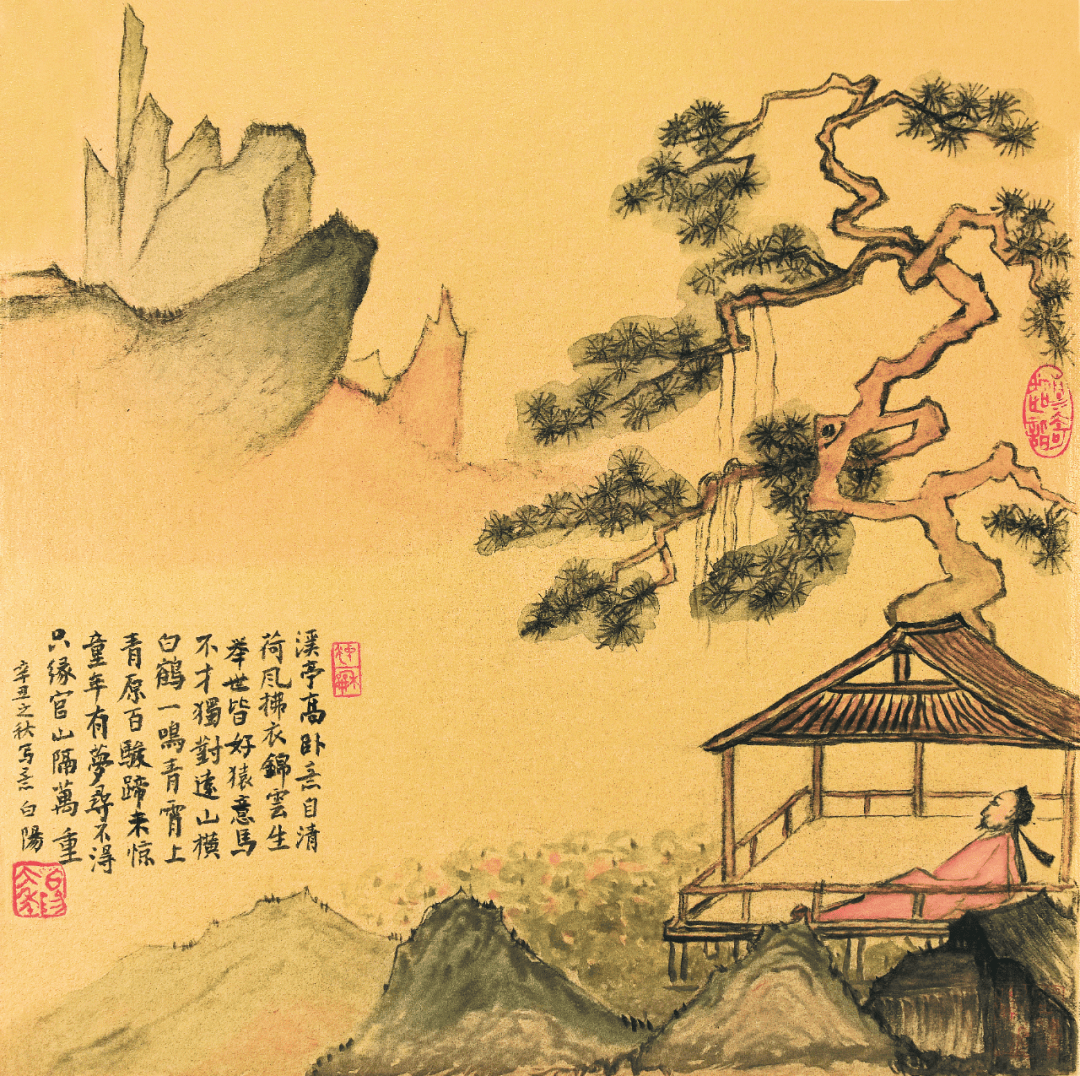 溪亭高卧意自清
荷风拂衣錦雲生
举世皆好猿意馬
不才獨對遠山横
白鶴一鳴青霄上
青原百駿蹄未惊
童年有夢尋不得
只缘官山隔萬重
辛丑之秋写意白陽